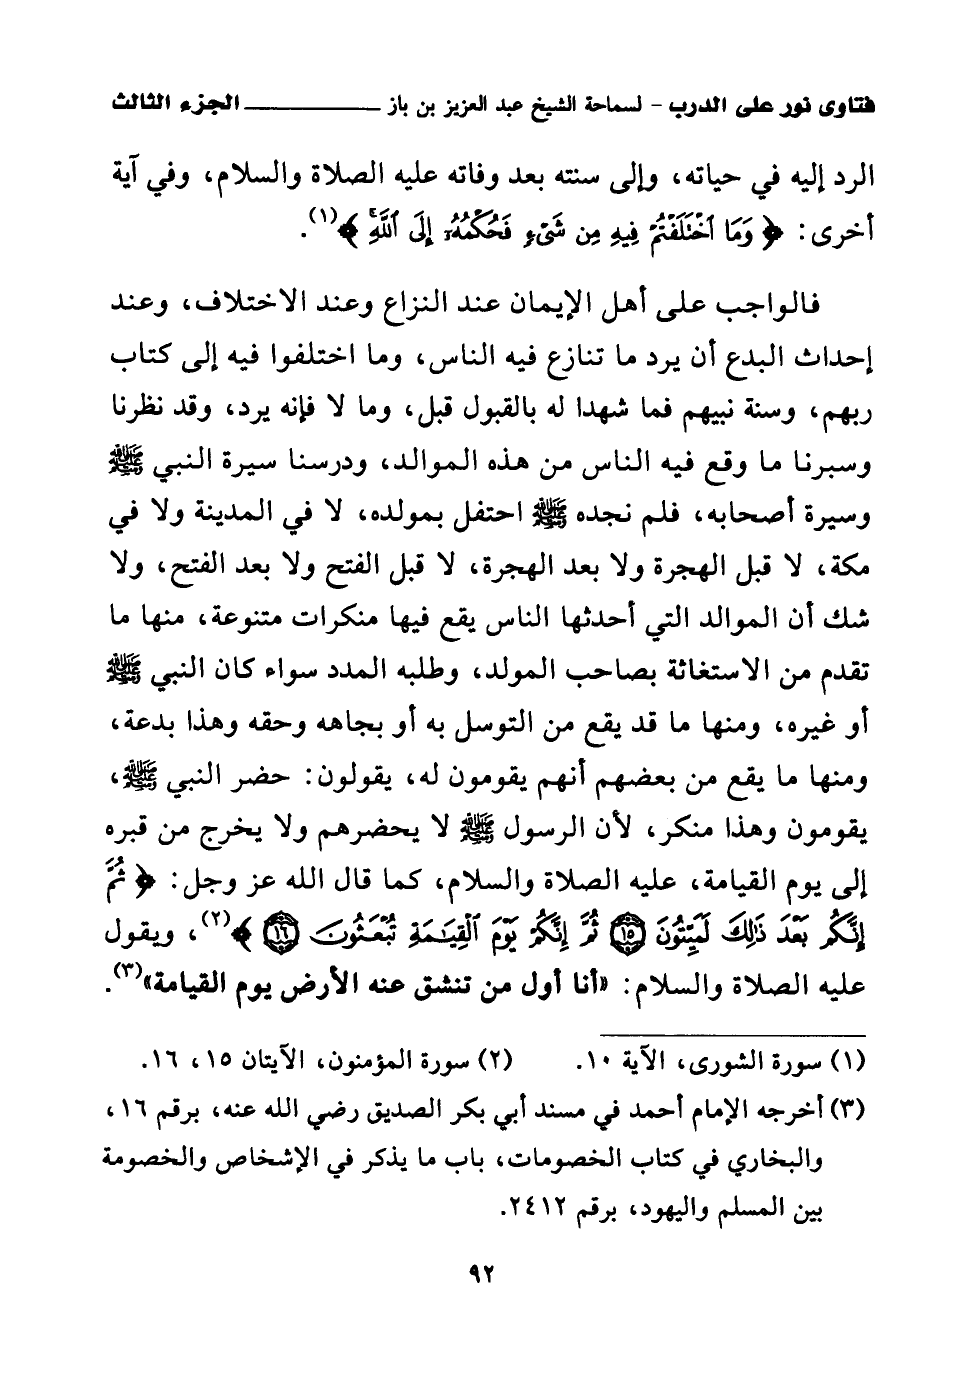 فتاوى نور على الدرب - لسماحة الشيخ عبد العزيز بن باز ــــــــــــ الجزء الثالث
الرد إليه في حياته، وإلى سنته بعد وفاته عليه الصلاة والسلام، وفي آية
أخرى: ﴿ وَمَا ٱخْتَلَفْتُمْ فِيهِ مِن شَىْءٍ فَحُكْمُهُۥٓ إِلَى ٱللَّهِۚ ﴾(١).
فالواجب على أهل الإيمان عند النزاع وعند الاختلاف، وعند
إحداث البدع أن يرد ما تنازع فيه الناس، وما اختلفوا فيه إلى كتاب
ربهم، وسنة نبيهم فما شهدا له بالقبول قبل، وما لا فإنه يرد، وقد نظرنا
وسبرنا ما وقع فيه الناس من هذه الموالد، ودرسنا سيرة النبي ﷺ
وسيرة أصحابه، فلم نجده ﷺ احتفل بمولده، لا في المدينة ولا في
مكة، لا قبل الهجرة ولا بعد الهجرة، لا قبل الفتح ولا بعد الفتح، ولا
شك أن الموالد التي أحدثها الناس يقع فيها منكرات متنوعة، منها ما
تقدم من الاستغاثة بصاحب المولد، وطلبه المدد سواء كان النبي ﷺ
أو غيره، ومنها ما قد يقع من التوسل به أو بجاهه وحقه وهذا بدعة،
ومنها ما يقع من بعضهم أنهم يقومون له، يقولون: حضر النبي ﷺ،
يقومون وهذا منكر، لأن الرسول ﷺ لا يحضرهم ولا يخرج من قبره
إلى يوم القيامة، عليه الصلاة والسلام، كما قال الله عز وجل: ﴿ ثُمَّ
إِنَّكُم بَعْدَ ذَٰلِكَ لَمَيِّتُونَ ١٥ ثُمَّ إِنَّكُمْ يَوْمَ ٱلْقِيَٰمَةِ تُبْعَثُونَ ١٦ ﴾(٢)، ويقول
عليه الصلاة والسلام: «أنا أول من تنشق عنه الأرض يوم القيامة»(٣).
(١) سورة الشورى، الآية ١٠. (٢) سورة المؤمنون، الآيتان ١٥، ١٦.
(٣) أخرجه الإمام أحمد في مسند أبي بكر الصديق رضي الله عنه، برقم ١٦،
والبخاري في كتاب الخصومات، باب ما يذكر في الإشخاص والخصومة
بين المسلم واليهود، برقم ٢٤١٢.
٩٢